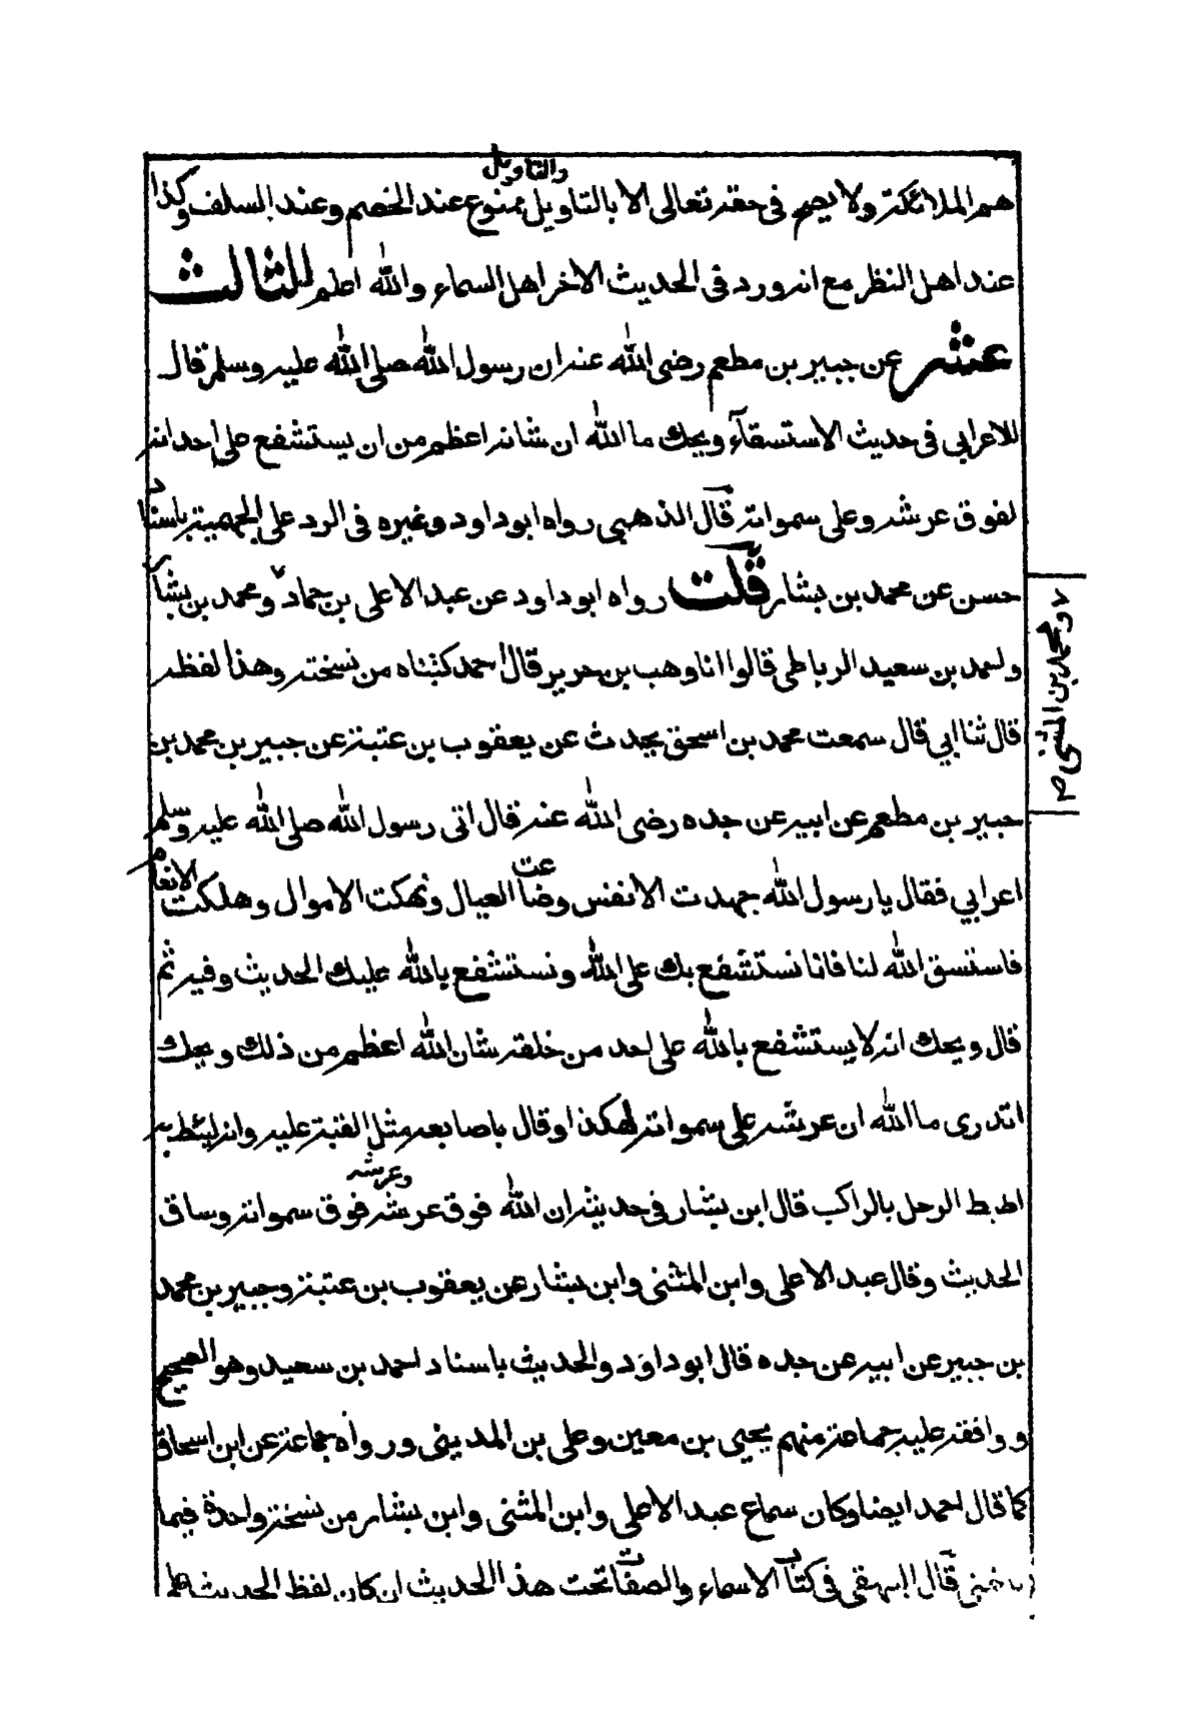 هم الملائكة ولا يصح في حقه تعالى الا بالتاويل والتاويل ممنوع عند الخصم وعند السلف وكذا
عند اهل النظر مع انه ورد في الحديث الاخر اهل السماء والله اعلم الثالث
عشر عن جبير بن مطعم رضى الله عنه ان رسول الله صلى الله عليه وسلم قال
للاعرابي في حديث الاستسقآء ويحك ما الله ان شانه اعظم من ان يستشفع على احد انه
لفوق عرشه وعلى سمواته قال الذهبي رواه ابو داود وغيره في الرد على الجهمية باسناد
حسن عن محمد بن بشار قلت رواه ابو داود عن عبد الاعلى بن حماد ومحمد بن بشار
واحمد بن سعيد الرباطي قالوا انا وهب بن جرير قال احمد كتبناه من نسخته وهذا لفظه
قال ثنا ابي قال سمعت محمد بن اسحق يحدث عن يعقوب بن عتبة عن جبير بن محمد بن
جبير بن مطعم عن ابيه عن جده رضى الله عنه قال اتى رسول الله صلى الله عليه وسلم
اعرابي فقال يا رسول الله جهدت الانفس وضاعت العيال ونهكت الاموال وهلكت الانعام
فاستسق الله لنا فانا نستشفع بك على الله ونستشفع بالله عليك الحديث وفيه ثم
قال ويحك انه لا يستشفع بالله على احد من خلقه شان الله اعظم من ذلك ويحك
اتدرى ما الله ان عرشه على سمواته لهكذا وقال باصابعه مثل القبة عليه وانه ليئط به
اطيط الرحل بالراكب قال ابن بشار في حديثه ان الله فوق عرشه وعرشه فوق سمواته وساق
الحديث وقال عبد الاعلى وابن المثنى وابن بشار عن يعقوب بن عتبة وجبير بن محمد
بن جبير عن ابيه عن جده قال ابو داود والحديث باسناد احمد بن سعيد وهو الصحيح
ووافقه عليه جماعة منهم يحيى بن معين وعلى بن المديني ورواه جماعة عن ابن اسحاق
كما قال احمد ايضا وكان سماع عبد الاعلى وابن المثنى وابن بشار من نسخة واحدة فيما
قال البيهقي في كتاب الاسماء والصفات تحت هذا الحديث ان كان لفظ الحديث على
ومحمد بن المثنى صح